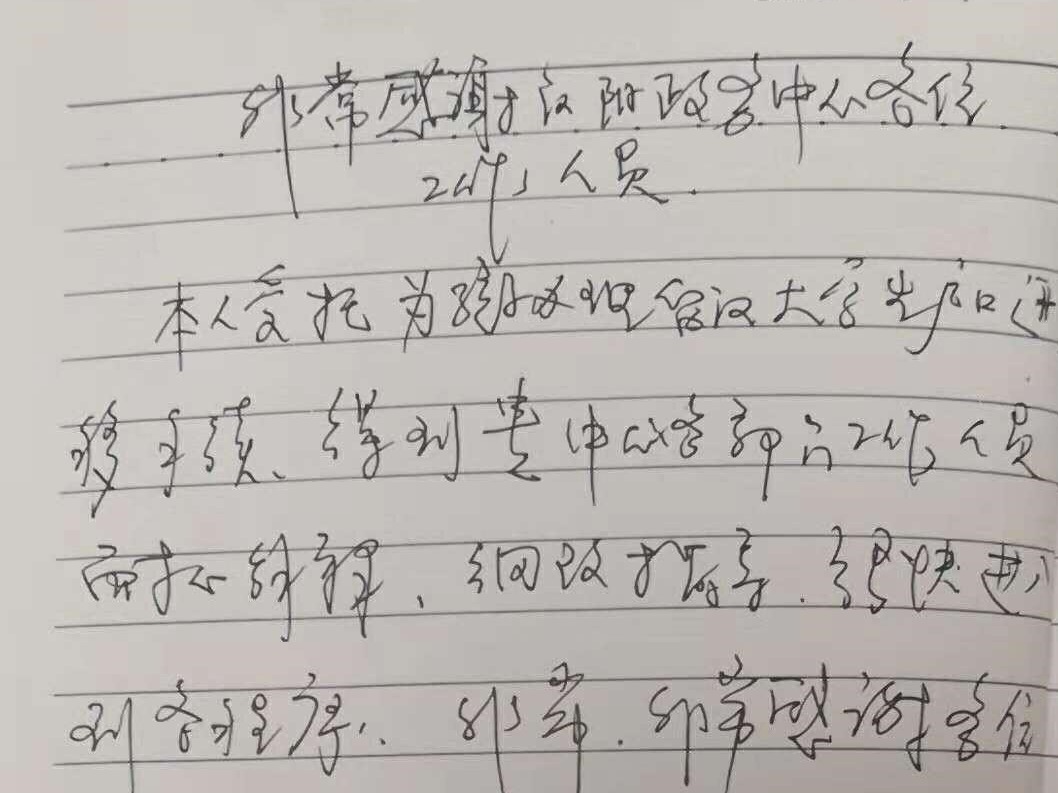 非常感谢汉阳政务中心各位
工作人员.
本人受托为孩子办理留汉大学生落户迁
移手续、得到贵中心各部门工作人员
耐心解释、细致指导.很快进入
到各程序.非常.非常感谢各位